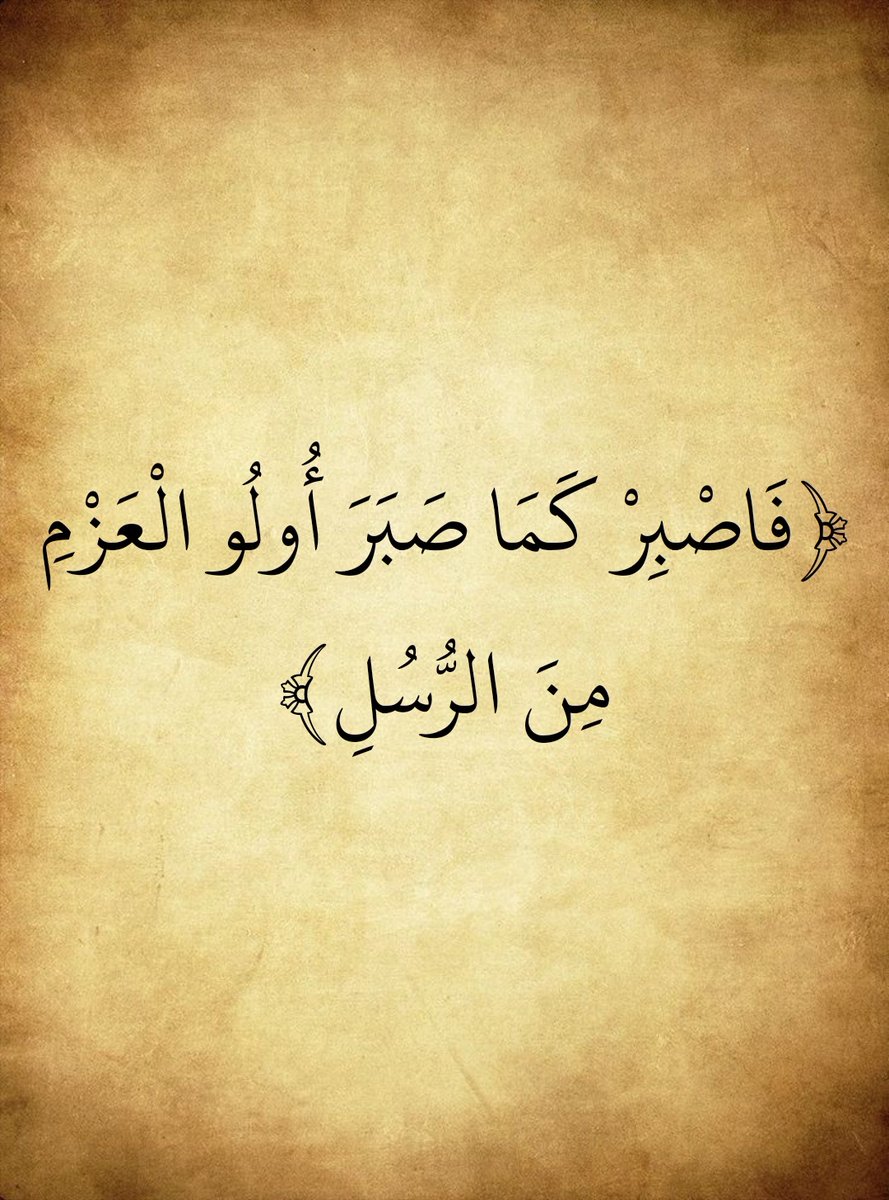 ﴿فَاصْبِرْ كَمَا صَبَرَ أُولُو الْعَزْمِ
مِنَ الرُّسُلِ﴾